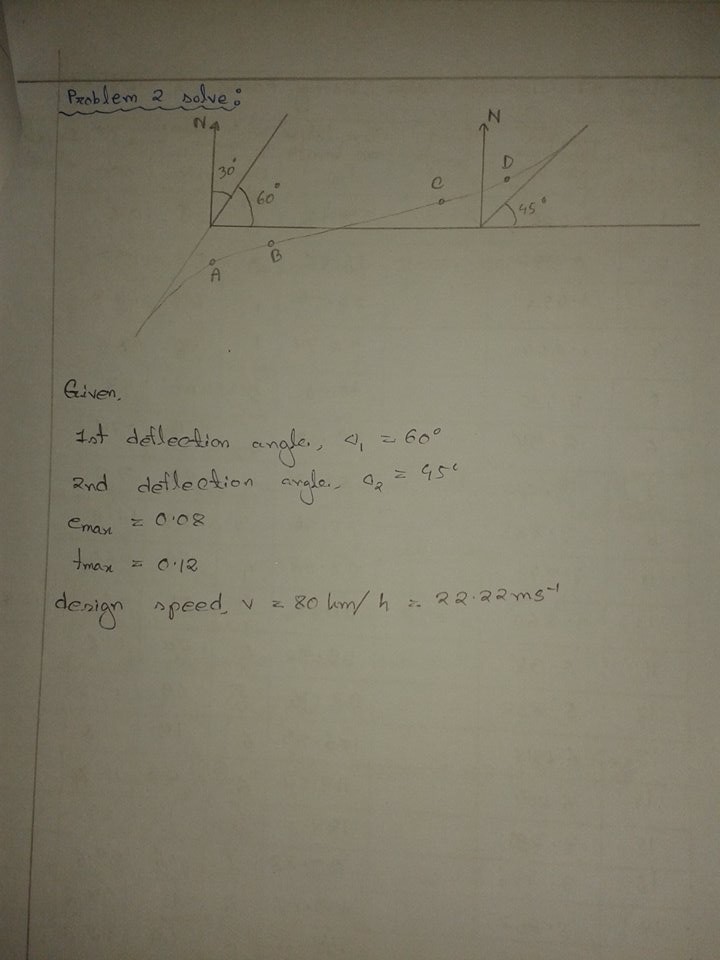 Problem 2 solve:
N
N
30°
60°
C
D
45°
B
A
Given,
1st deflection angle, Δ₁ = 60°
2nd deflection angle, Δ₂ = 45°
emax = 0.08
fmax = 0.12
design speed, v = 80 km/h = 22.22 ms⁻¹